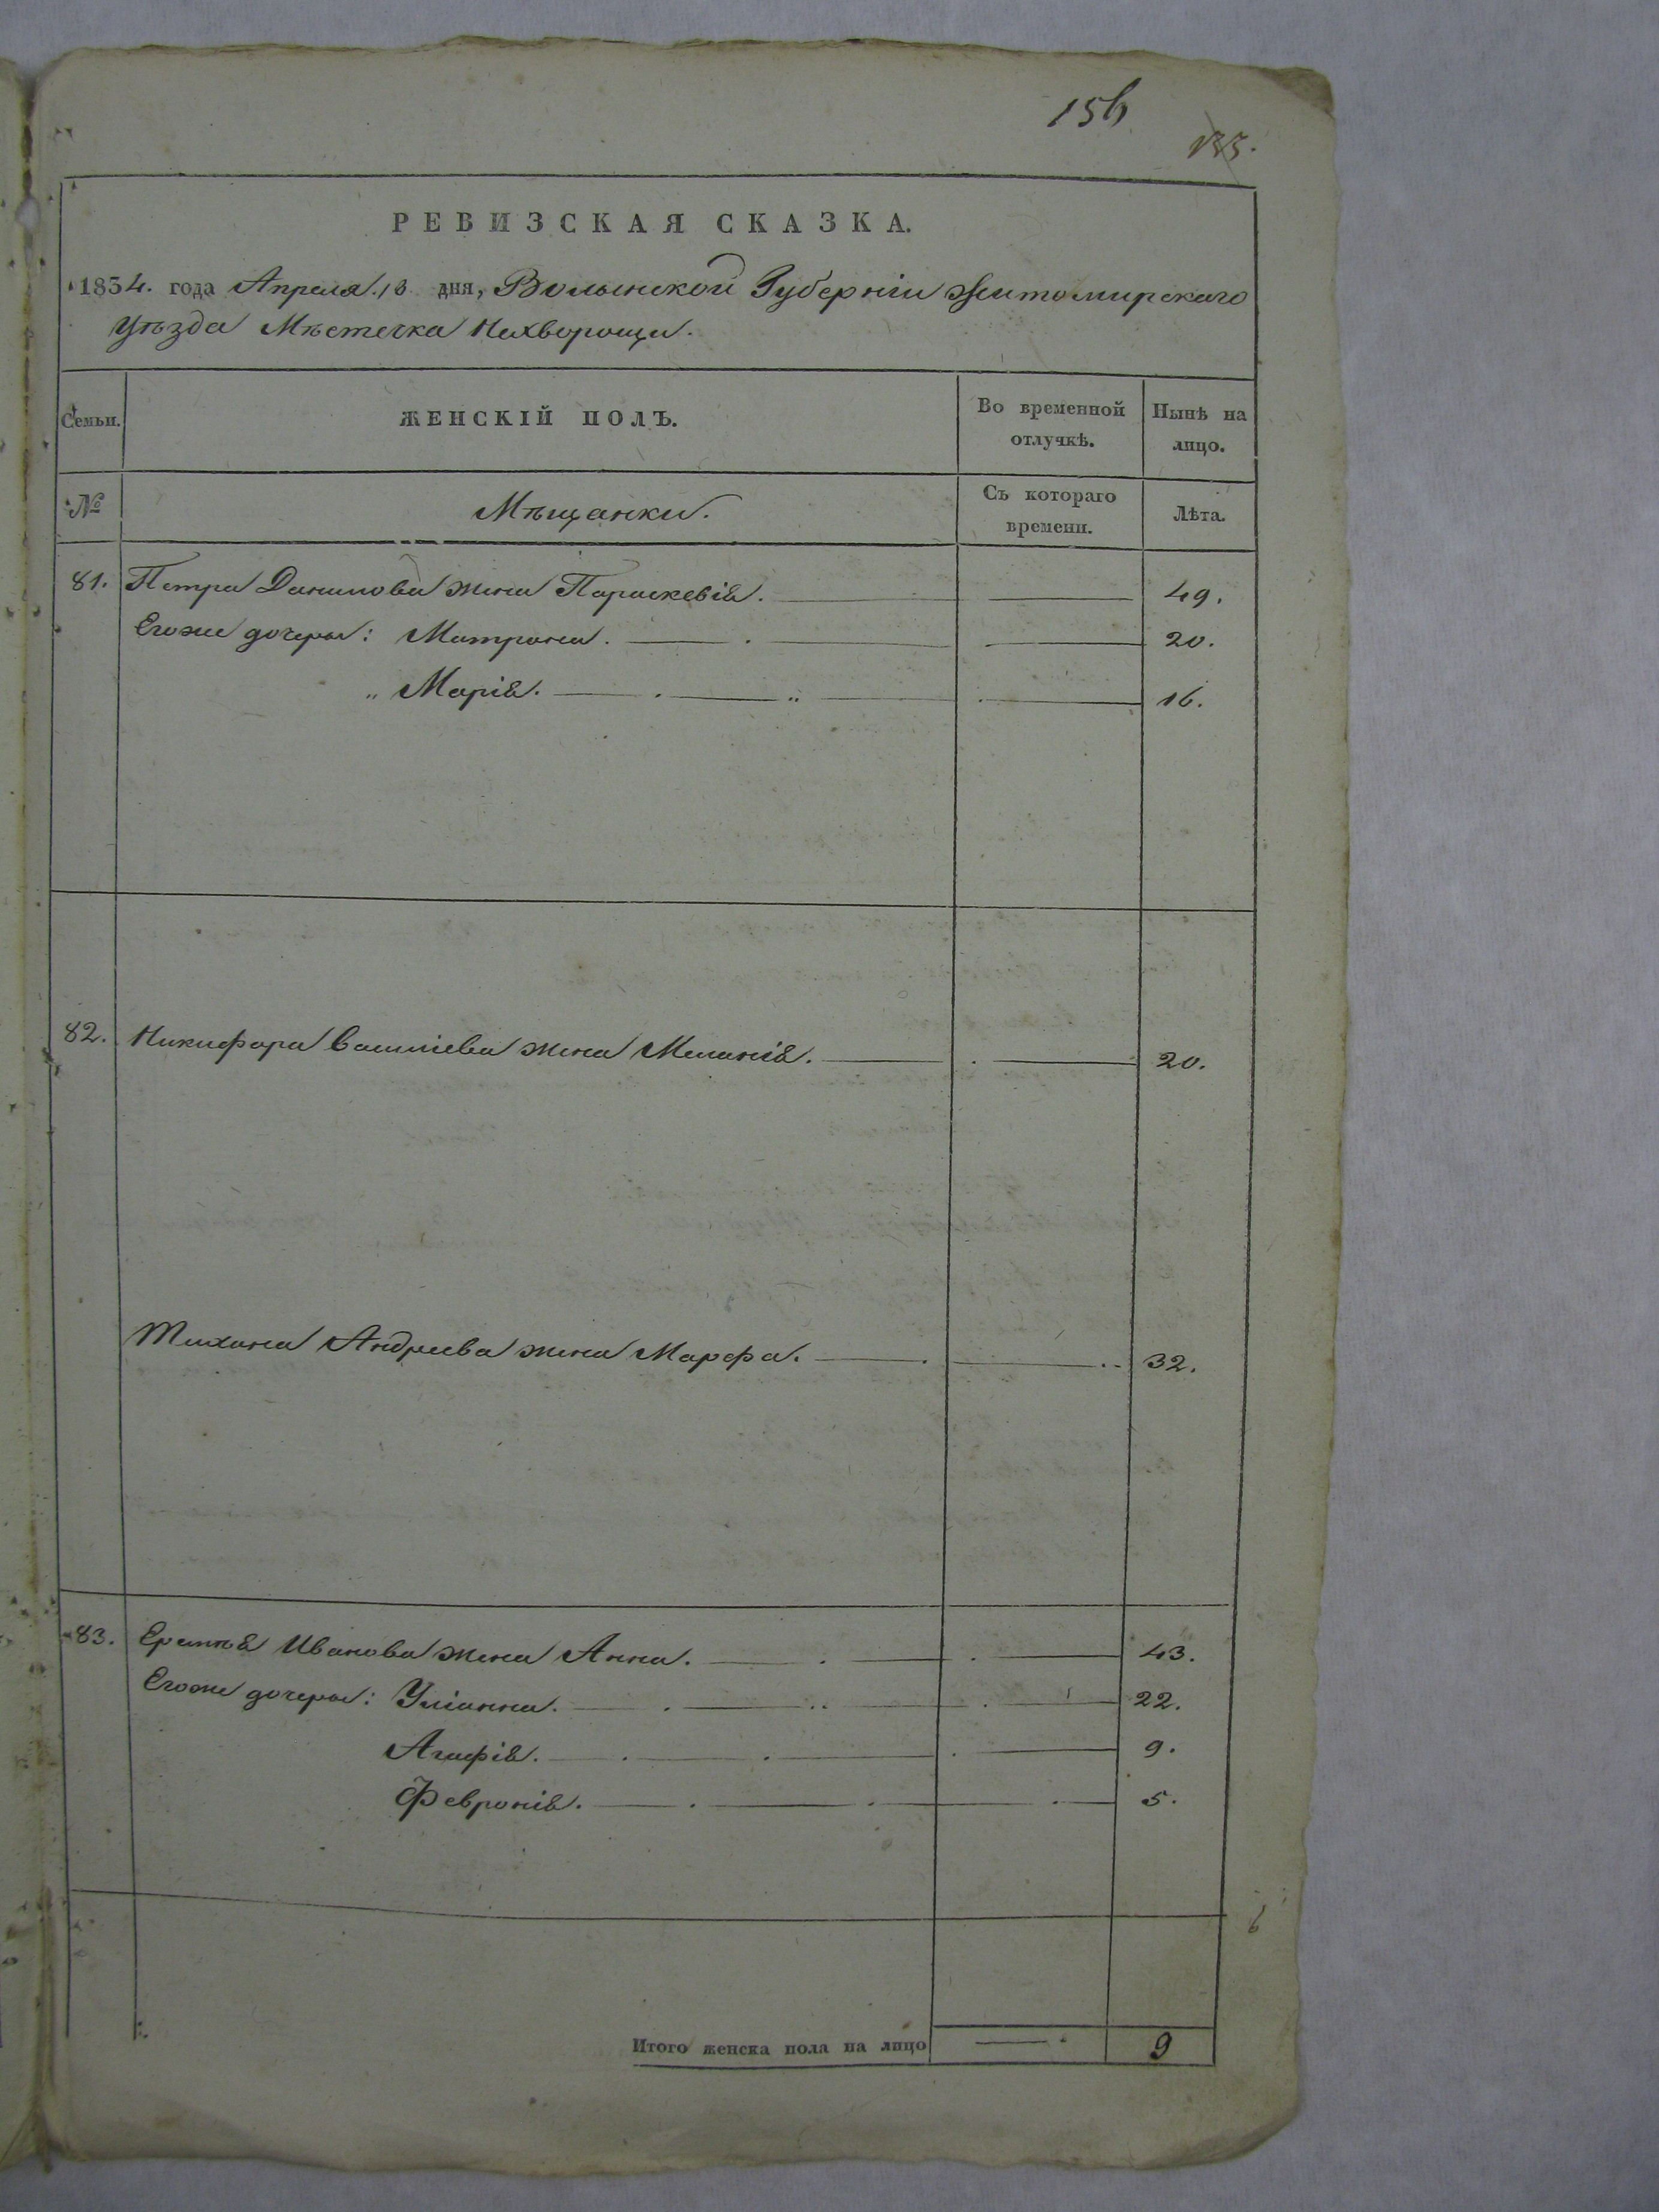 156
133.
РЕВИЗСКАЯ СКАЗКА.
1834. года Апреля 13 дня, Волынской Губерніи Житомирскаго
Уѣзда Мѣстечка Нехворощи.
Семьи.
ЖЕНСКІЙ ПОЛЪ.
Во временной отлучкѣ.
Нынѣ на лицо.
№
Мѣщанки.
Съ котораго времени.
Лѣта.
81. Петра Данилова жена Параскевія. 49.
Егоже дочеры: Матрона. 20.
„ Марія. 16.
82. Никифора Василіева жена Меланія. 20.
Тихона Андреева жена Марфа. 32.
83. Еремѣя Иванова жена Анна. 43.
Егоже дочеры: Уліанна. 22.
Агафія. 9.
Февронія. 5.
Итого женска пола на лицо 9